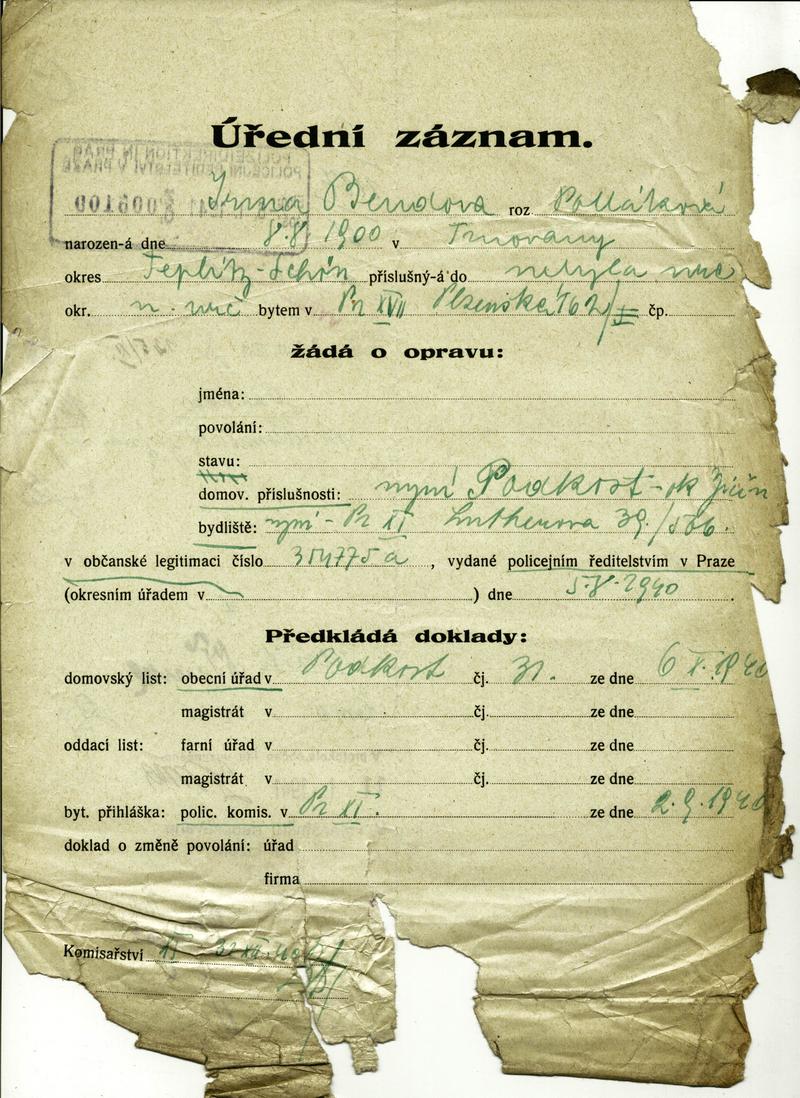 Úřední záznam.
POLIZEIDIREKTION IN PRAG
POLICEJNÍ ŘEDITELSTVÍ V PRAZE
009100
Irma Bendova roz Polláková
narozen-á dne 8.8. 1900 v Trnovany
okres Teplitz-Schön příslušný-á do nebyla
okr. bytem v Pr XVII Plzeňská 162/ čp.
žádá o opravu:
jména:
povolání:
stavu:
domov. příslušnosti: nyní Podkost - ok Jičín
bydliště: nyní - Pr XI Lutherova 39./566.
v občanské legitimaci číslo 354775 a , vydané policejním ředitelstvím v Praze
(okresním úřadem v ) dne 5.8.1940 .
Předkládá doklady:
domovský list: obecní úřad v Podkost čj. 31. ze dne 6 X. 1940
magistrát v čj. ze dne
oddací list: farní úřad v čj. ze dne
magistrát v čj. ze dne
byt. přihláška: polic. komis. v Pr XI. ze dne 2.9.1940
doklad o změně povolání: úřad
firma
Komisařství XI